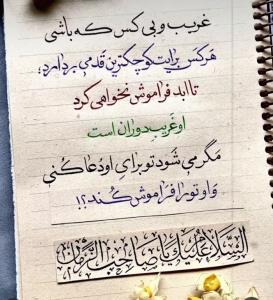 غریب و بی کس که باشی
هرکس برایت کوچکترین قدمی بردارد؛
تا ابد فراموش نخواهی کرد
او غریب دوران است
مگر می شود تو برای او دعا کنی
و او تو را فراموش کند؟!
السلام علیک یا صاحب الزمان